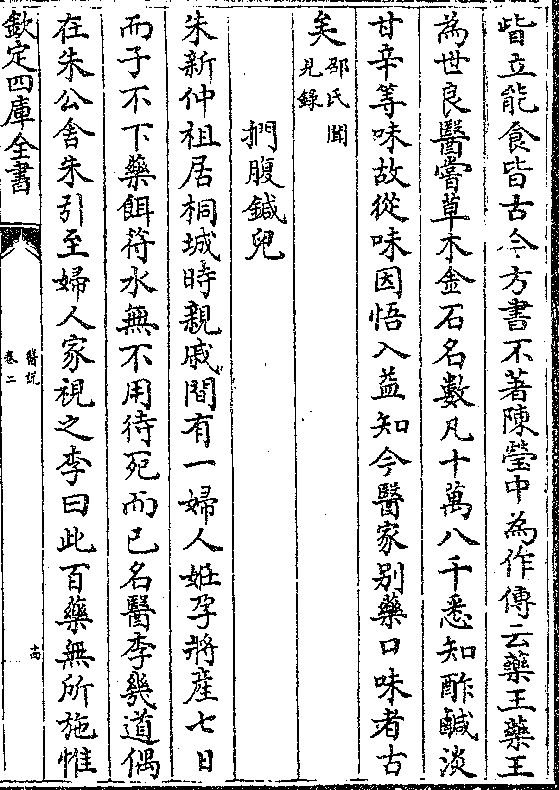 皆立能食皆古今方書不著陳瑩中為作傳云藥王藥王
為世良醫嘗草木金石名數凡十萬八千悉知酢鹹淡
甘辛等味故從味因悟入益知今醫家别藥口味者古
矣邵氏聞
見錄
捫腹鍼兒
朱新仲祖居桐城時親戚間有一婦人姙孕將産七日
而子不下藥餌符水無不用待死而已名醫李幾道偶
在朱公舍朱引至婦人家視之李曰此百藥無所施惟
欽定四庫全書
醫説
卷二